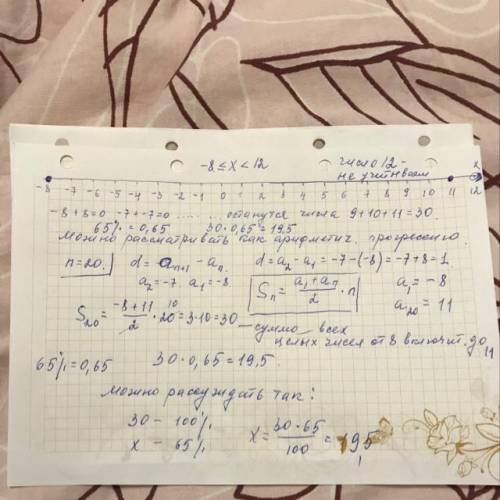 -8 ≤ x < 12
число 12 - не учитываем
x
-8 -7 -6 -5 -4 -3 -2 -1 0 1 2 3 4 5 6 7 8 9 10 11 12
-8+8=0 -7+7=0 ...... останутся числа 9+10+11=30
65%=0,65 30·0,65=19,5
можно рассматривать как арифметич. прогрессию
n=20. d = aₙ₊₁ - aₙ. d = a₂ - a₁ = -7-(-8) = -7+8=1
a₂=-7 a₁=-8
Sₙ = (a₁+aₙ)/2 · n
a₁ = -8
a₂₀ = 11
S₂₀ = (-8+11)/2 · 20 10 = 3·10=30 — сумма всех
целых чисел от 8 включит. до 11
65%=0,65 30·0,65=19,5.
можно рассуждать так:
30 - 100%
x - 65%
x = (30·65)/100 = 19,5